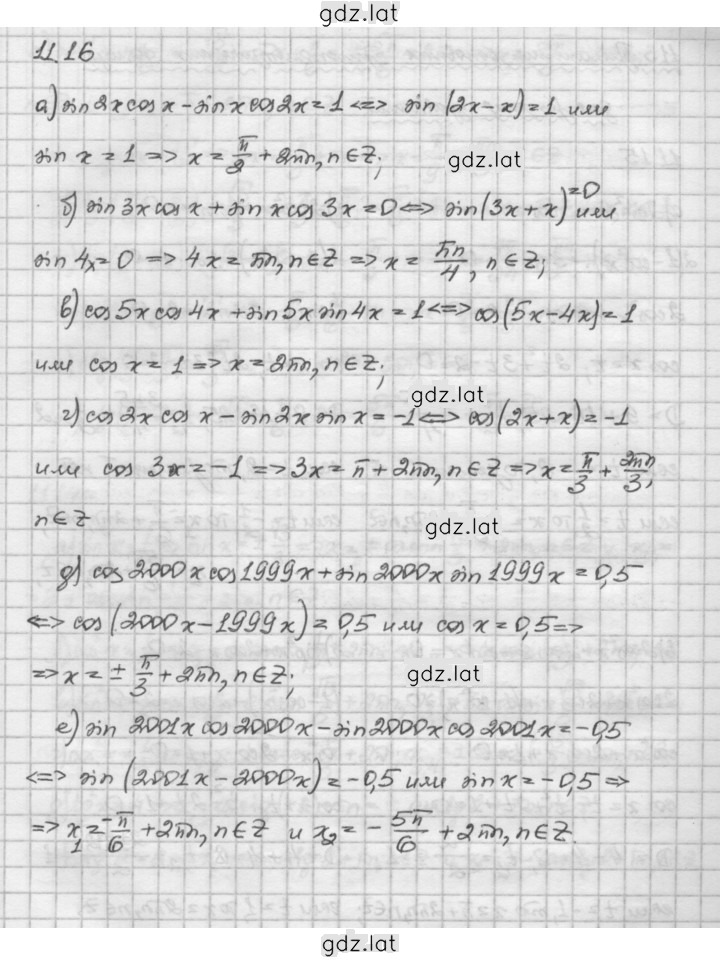 gdz.lat
11.16
а) sin 2x cos x - sin x cos 2x = 1 <=> sin (2x - x) = 1 или
sin x = 1 => x = π/2 + 2πn, n ∈ Z;
gdz.lat
б) sin 3x cos x + sin x cos 3x = 0 <=> sin (3x + x) = 0 или
sin 4x = 0 => 4x = πn, n ∈ Z => x = πn/4, n ∈ Z;
в) cos 5x cos 4x + sin 5x sin 4x = 1 <=> cos (5x - 4x) = 1
или cos x = 1 => x = 2πn, n ∈ Z;
gdz.lat
г) cos 2x cos x - sin 2x sin x = -1 <=> cos (2x + x) = -1
или cos 3x = -1 => 3x = π + 2πn, n ∈ Z => x = π/3 + 2πn/3,
n ∈ Z
gdz.lat
д) cos 2000x cos 1999x + sin 2000x sin 1999x = 0,5
<=> cos (2000x - 1999x) = 0,5 или cos x = 0,5 =>
=> x = ± π/3 + 2πn, n ∈ Z;
gdz.lat
е) sin 2001x cos 2000x - sin 2000x cos 2001x = -0,5
<=> sin (2001x - 2000x) = -0,5 или sin x = -0,5 =>
=> x₁ = -π/6 + 2πn, n ∈ Z и x₂ = - 5π/6 + 2πn, n ∈ Z.
gdz.lat